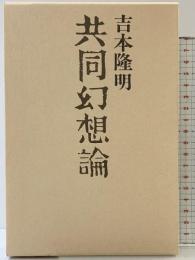 吉本隆明
共同幻想論